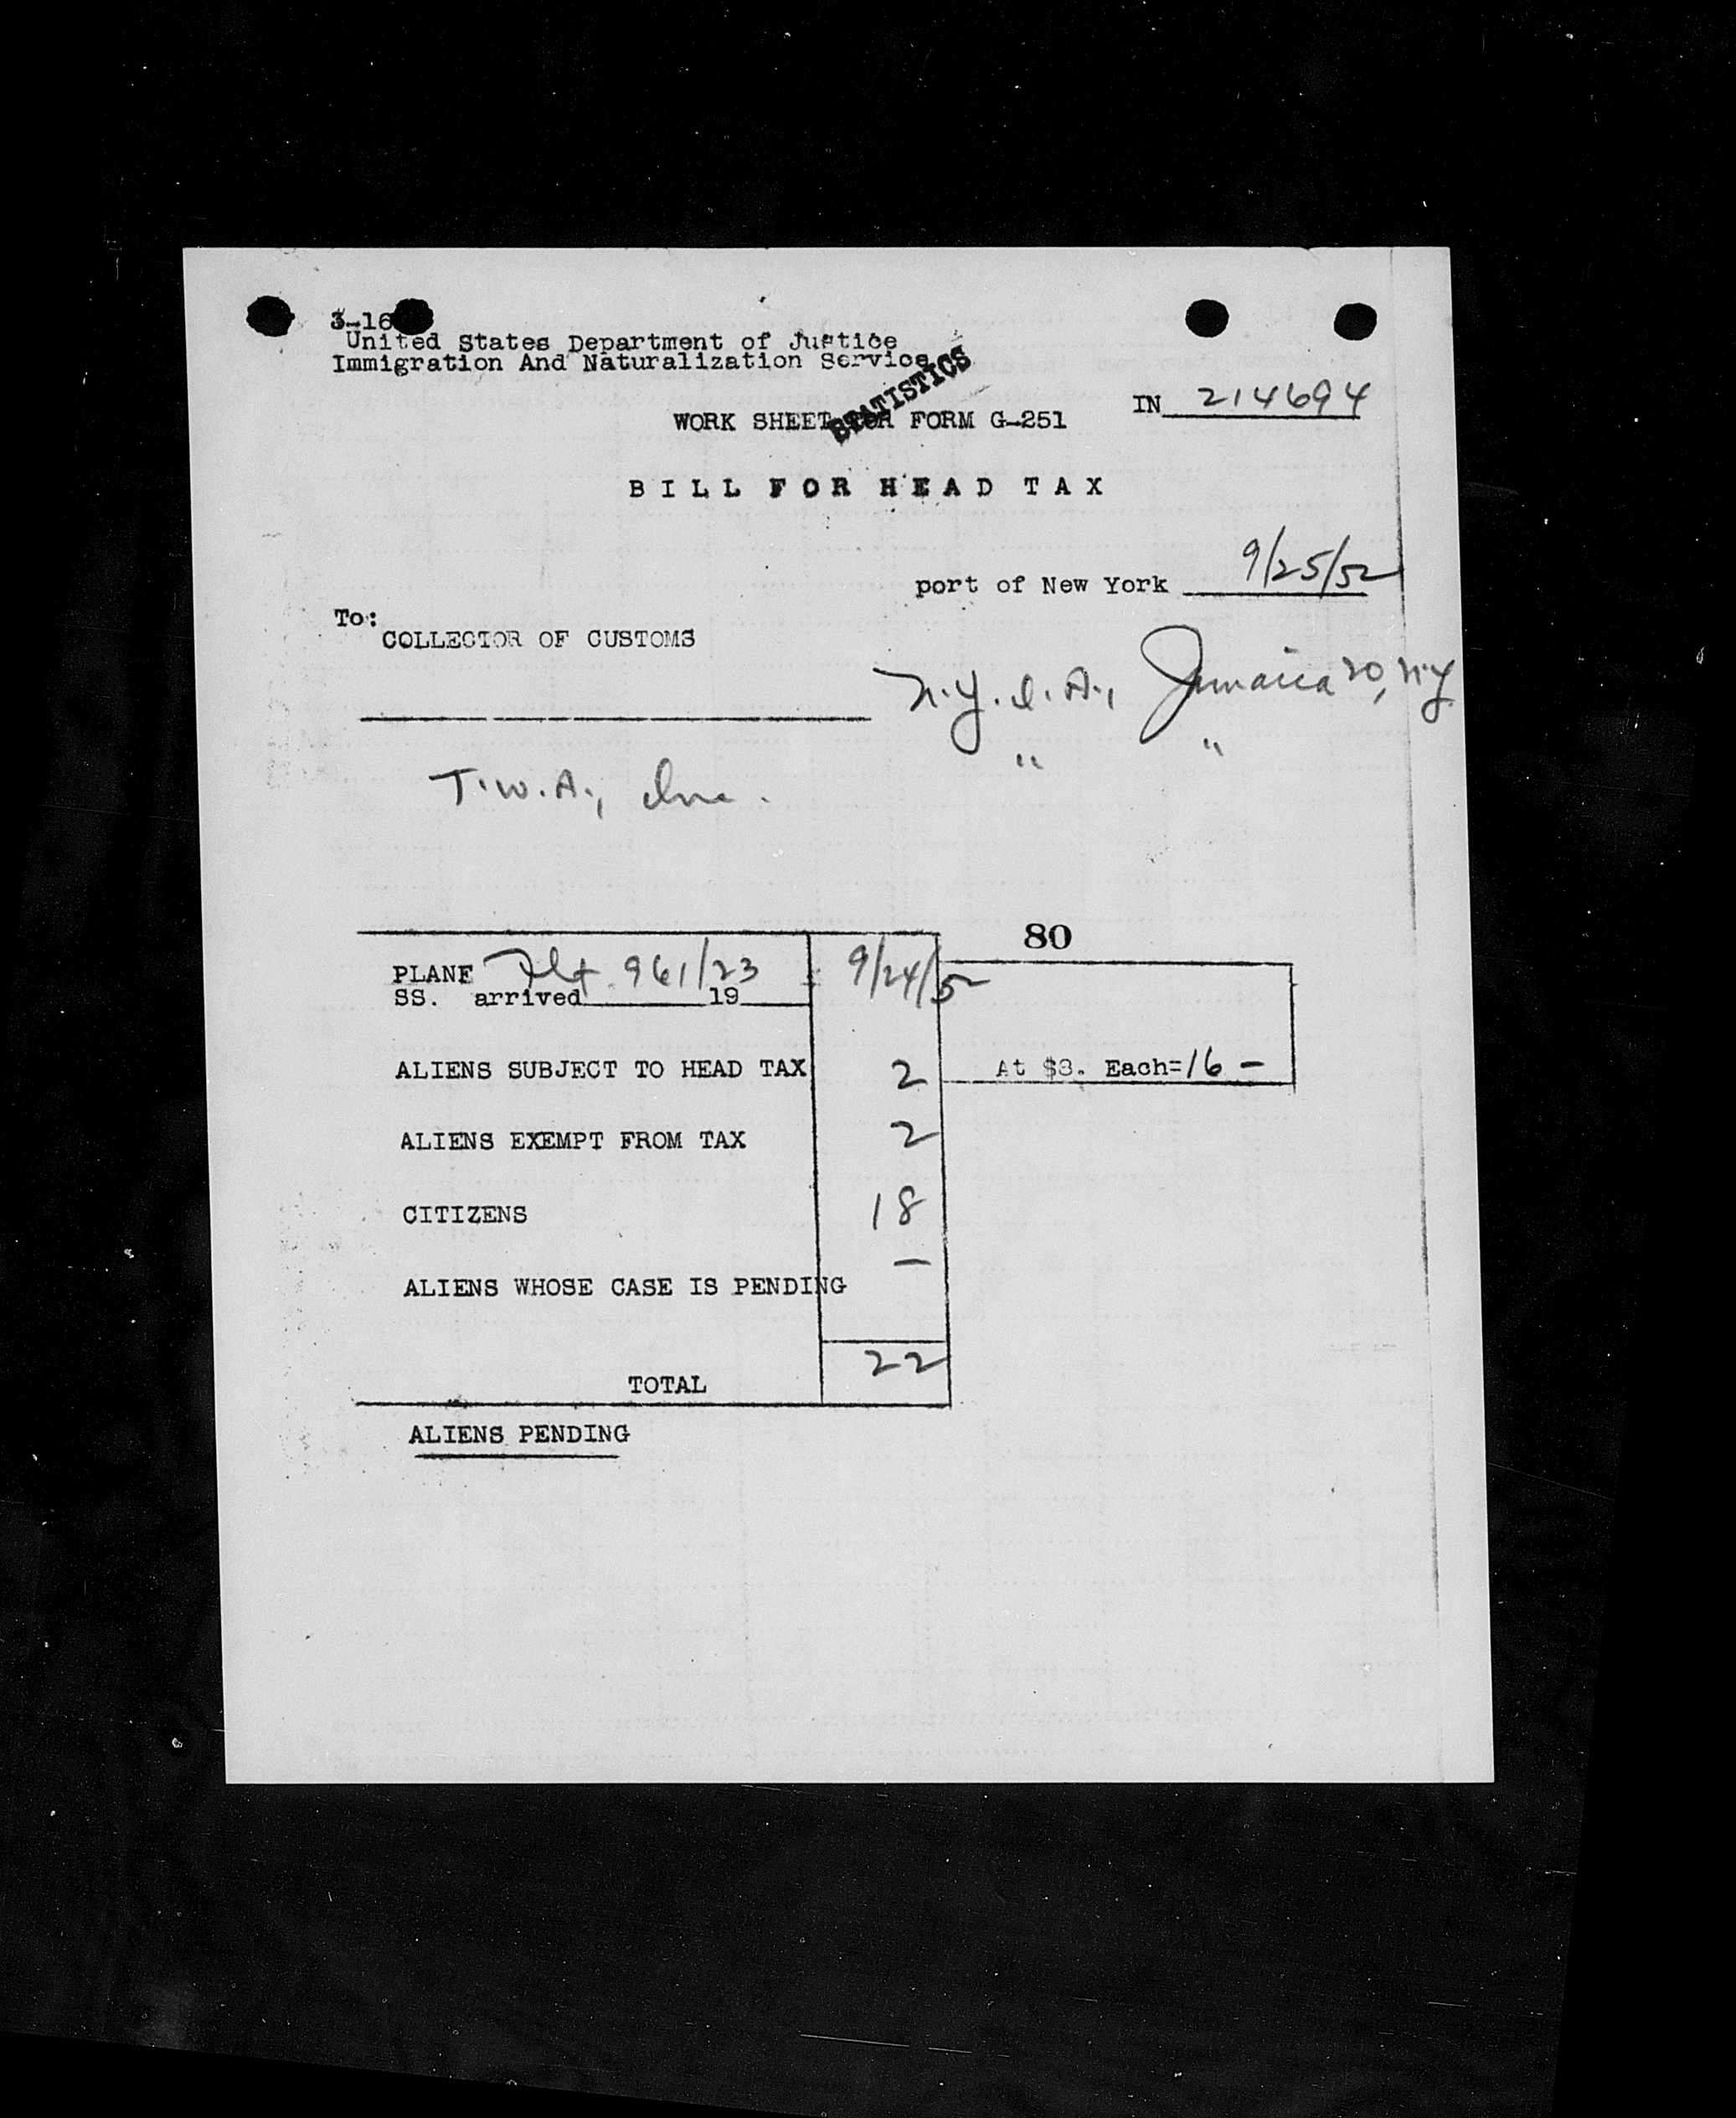 3-16
United States Department of Justice
Immigration And Naturalization Service
STATISTICS
WORK SHEET FOR FORM G-251
IN 214694
BILL FOR HEAD TAX
port of New York 9/25/52
To:
COLLECTOR OF CUSTOMS
N.Y.I.A., Jamaica 30, N.Y
" "
T.W.A., Inc.
80
PLANE Flt 961/23 9/24/52
SS. arrived 19
ALIENS SUBJECT TO HEAD TAX 2 At $8. Each=16 -
ALIENS EXEMPT FROM TAX 2
CITIZENS 18
ALIENS WHOSE CASE IS PENDING —
TOTAL 22
ALIENS PENDING